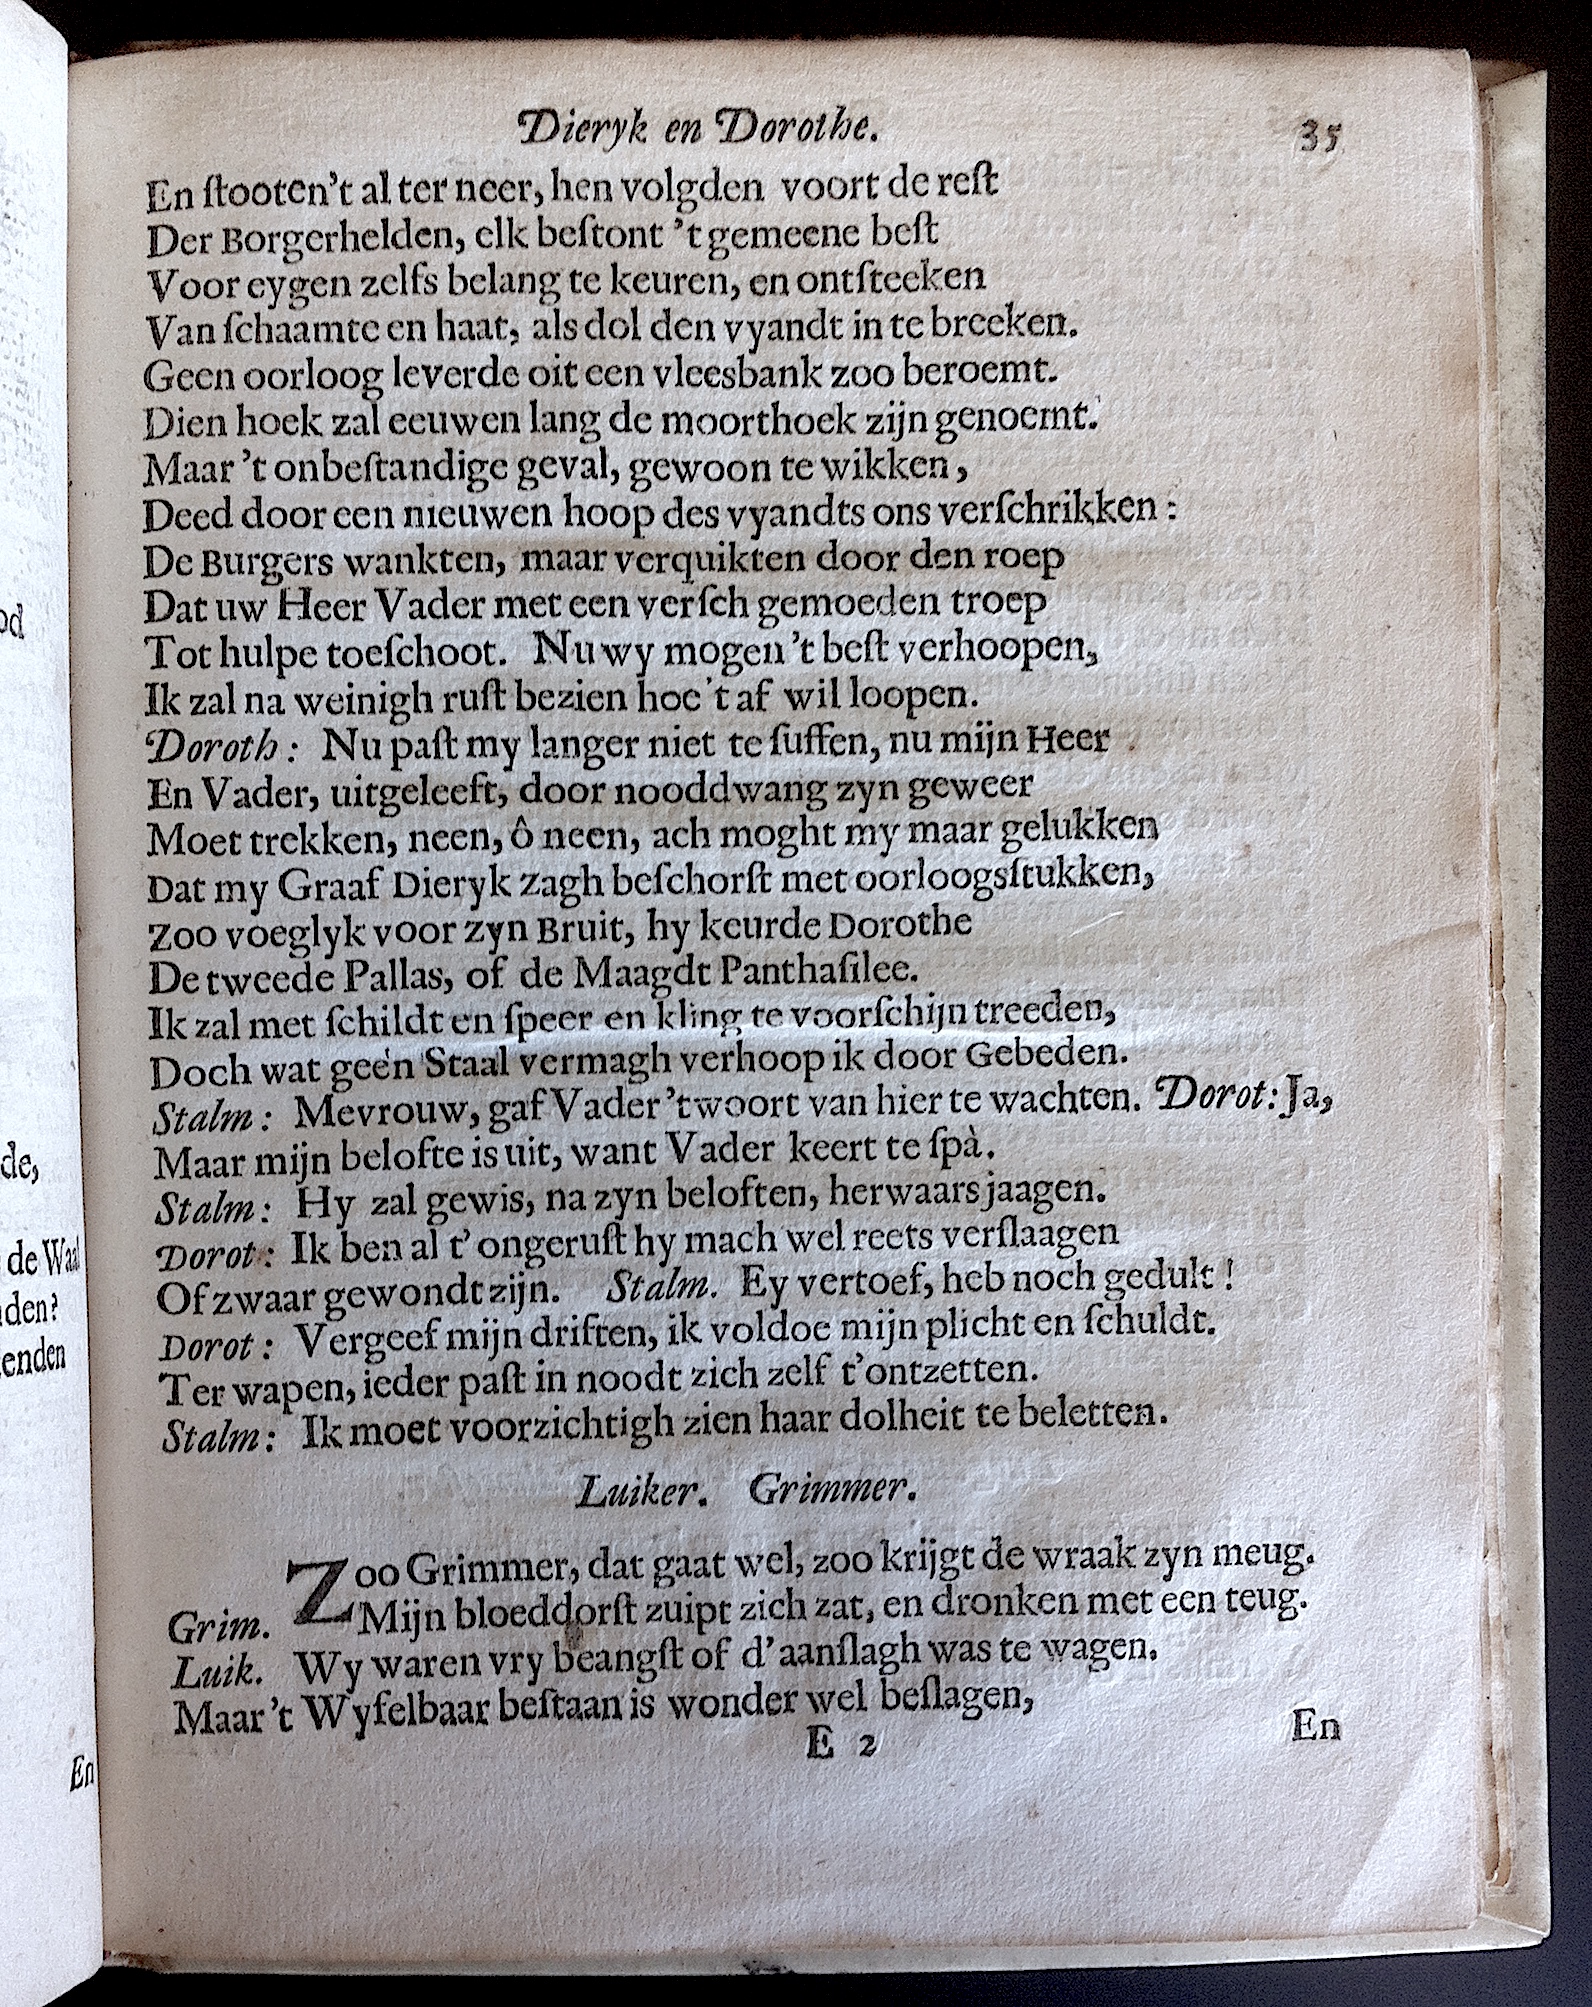 Dieryk en Dorothe. 35
En ſtooten't al ter neer, hen volgden voort de reſt
Der Borgerhelden, elk beſtont 't gemeene beſt
Voor eygen zelfs belang te keuren, en ontſteeken
Van ſchaamte en haat, als dol den vyandt in te breeken.
Geen oorloog leverde oit een vleesbank zoo beroemt.
Dien hoek zal eeuwen lang de moorthoek zijn genoemt.
Maar 't onbeſtandige geval, gewoon te wikken,
Deed door een nieuwen hoop des vyandts ons verſchrikken:
De Burgers wankten, maar verquikten door den roep
Dat uw Heer Vader met een verſch gemoeden troep
Tot hulpe toeſchoot. Nu wy mogen 't beſt verhoopen,
Ik zal na weinigh ruſt bezien hoe 't af wil loopen.
Doroth: Nu paſt my langer niet te ſuffen, nu mijn Heer
En Vader, uitgeleeft, door nooddwang zyn geweer
Moet trekken, neen, ô neen, ach moght my maar gelukken
Dat my Graaf Dieryk zagh beſchorſt met oorloogsſtukken,
Zoo voeglyk voor zyn Bruit, hy keurde Dorothe
De tweede Pallas, of de Maagdt Panthaſilee.
Ik zal met ſchildt en ſpeer en kling te voorſchijn treeden,
Doch wat geen Staal vermagh verhoop ik door Gebeden.
Stalm: Mevrouw, gaf Vader 't woort van hier te wachten. Dorot: Ja,
Maar mijn belofte is uit, want Vader keert te ſpà.
Stalm: Hy zal gewis, na zyn beloften, herwaars jaagen.
Dorot: Ik ben al t' ongeruſt hy mach wel reets verſlaagen
Of zwaar gewondt zijn. Stalm. Ey vertoef, heb noch gedult!
Dorot: Vergeef mijn driften, ik voldoe mijn plicht en ſchuldt.
Ter wapen, ieder paſt in noodt zich zelf t'ontzetten.
Stalm: Ik moet voorzichtigh zien haar dolheit te beletten.
Luiker. Grimmer.
Zoo Grimmer, dat gaat wel, zoo krijgt de wraak zyn meug.
Grim. Mijn bloeddorſt zuipt zich zat, en dronken met een teug.
Luik. Wy waren vry beangſt of d'aanſlagh was te wagen.
Maar 't Wyfelbaar beſtaan is wonder wel beſlagen,
E 2 En
od
de,
de Waal
den?
enden
En